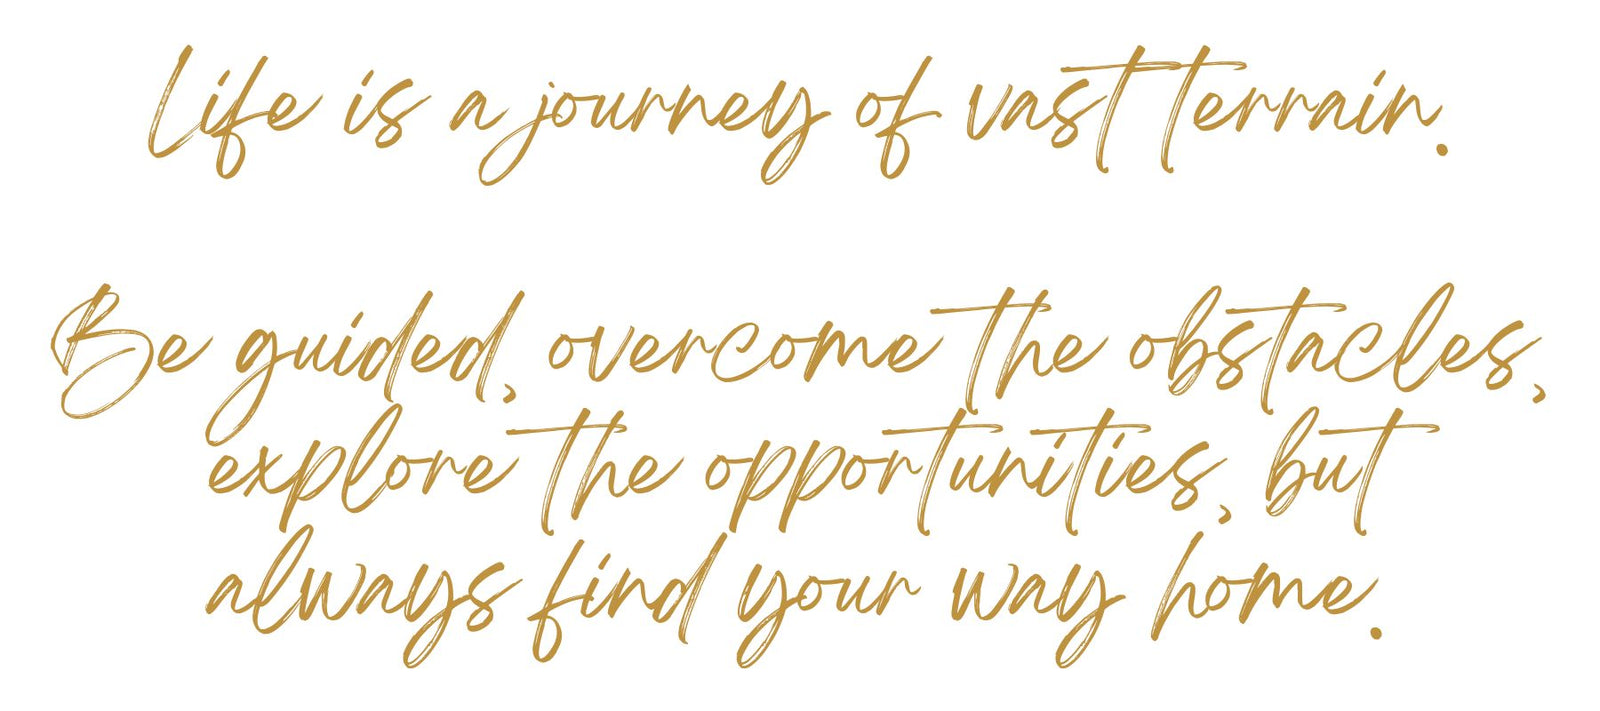 Life is a journey of vast terrain.
Be guided, overcome the obstacles,
explore the opportunities, but
always find your way home.